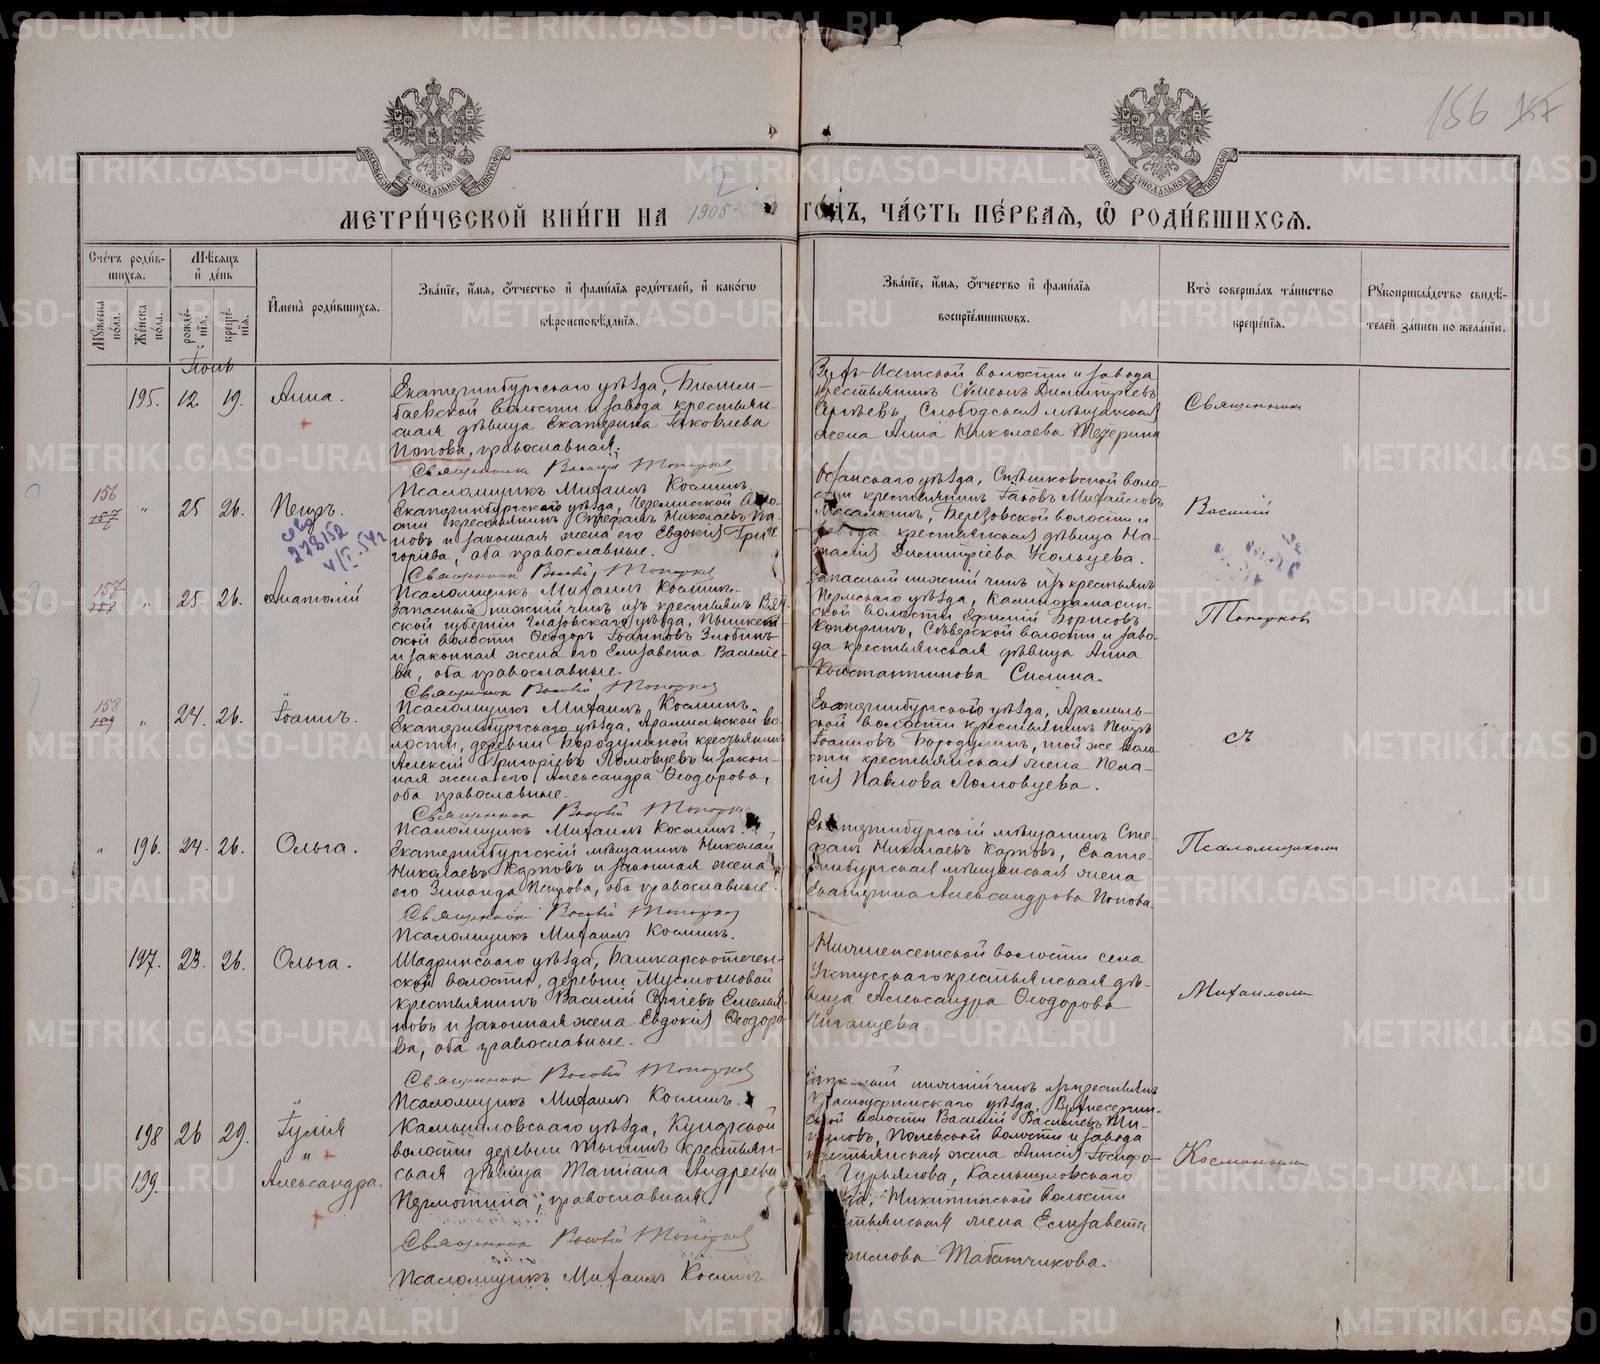 156 157
МЕТРИ́ЧЕСКОЙ КНИ́ГИ НА 1905 ГО́ДЪ, ЧА́СТЬ ПЕ́РВАЯ, Ѡ РОДИ́ВШИХСЯ.
2
Сче́тъ роди́вшихся.
Мꙋ́жеска по́ла.
Же́нска по́ла.
Мѣ́сяцъ и́ де́нь
рожде́нїя.
креще́нїя.
И́мена̀ роди́вшихся.
Зва́нїе, и́мя, ѻ́тчество и́ фами́лїя роди́телей, и́ како́гѡ
вѣроисповѣ́данїя.
Зва́нїе, и́мя, ѻ́тчество и́ фами́лїя
воспрїе́мникѡвъ.
Кто̀ соверша́лъ та́инство
креще́нїя.
Рꙋкоприкла́дство свидѣ́-
телей за́писи по жела́нїю.
Іюнь
195. 12. 19. Анна.
Екатеринбургскаго уѣзда, Билим-
баевской волости и завода крестьян-
ская дѣвица Екатерина Яковлева
Попова, православная.
Священникъ Василій Топорковъ
Псаломщикъ Михаилъ Косминъ.
Верх-Исетской волости и завода
крестьянинъ Сѵмеонъ Димитріевъ
Сергѣевъ, Слободская мѣщанская
жена Анна Николаева
Священникъ
156
157 " 25 26. Петръ.
278152
Екатеринбургскаго уѣзда,
крестьянинъ Стефанъ Николаевъ По-
повъ и законная жена его Евдокія Гри-
горьева, оба православные.
Священникъ Василій Топорковъ
Псаломщикъ Михаилъ Косминъ.
Осинскаго уѣзда, воло-
сти крестьянинъ Іаковъ Михайловъ
Березовской волости и
завода крестьянская дѣвица На-
талія Димитріева Усольцева.
Василій
157
158 " 25. 26. Анатолій
Запасный нижній чинъ изъ крестьянъ Вят-
ской губерніи Глазовскаго уѣзда,
ской волости Ѳеодоръ Іоанновъ Злобинъ
и законная жена его Елизавета Василье-
ва, оба православные.
Священникъ Василій Топорковъ
Псаломщикъ Михаилъ Косминъ.
Запасный нижній чинъ изъ крестьянъ
Пермскаго уѣзда,
ской волости Ефимій Борисовъ
Копыринъ, Сѣверской волости и заво-
да крестьянская дѣвица Анна
Константинова Силина.
Топорковъ
158
159 " 24. 26. Іоаннъ.
Екатеринбургскаго уѣзда, Арамильской во-
лости, деревни Бородулиной крестьянинъ
Алексій Григорьевъ Ломовцевъ и закон-
ная жена его Александра Ѳеодорова,
оба православные.
Священникъ Василій Топорковъ
Псаломщикъ Михаилъ Косминъ.
Екатеринбургскаго уѣзда, Арамиль-
ской волости крестьянинъ Петръ
Іоанновъ Бородулинъ, той же воло-
сти крестьянская жена Пела-
гія Павлова Ломовцева.
съ
" 196. 24. 26. Ольга.
Екатеринбургскій мѣщанинъ Николай
Николаевъ Карповъ и законная жена
его Зинаида Петрова, оба православные.
Священникъ Василій Топорковъ
Псаломщикъ Михаилъ Косминъ.
Екатеринбургскій мѣщанинъ Сте-
фанъ Николаевъ Карповъ, Екате-
ринбургская мѣщанская жена
Екатерина Александрова Попова.
Псаломщикомъ
197. 23. 26. Ольга.
Шадринскаго уѣзда, Башкарскотечен-
ской волости, деревни Муслюмовой
крестьянинъ Василій Сергіевъ Емелья-
новъ и законная жена Евдокія Ѳеодоро-
ва, оба православные.
Священникъ Василій Топорковъ
Псаломщикъ Михаилъ Косминъ.
Нижнеисетской волости села
Уктусскаго крестьянская дѣ-
вица Александра Ѳеодорова
Михаиломъ
198 26 29. Іулія
199. Александра.
Камышловскаго уѣзда, Кунарской
волости деревни крестьян-
ская дѣвица Татіана Андреева
православная.
Священникъ Василій Топорковъ
Псаломщикъ Михаилъ Косминъ
нижній чинъ изъ крестьянъ
Красноуфимскаго уѣзда,
волости Василій Васильевъ
Полевской волости и завода
крестьянская жена Анисія Іосифо-
Гурьянова, Камышловскаго
Никитинской волости
жена Елизавета
Табатчикова.
Косминымъ